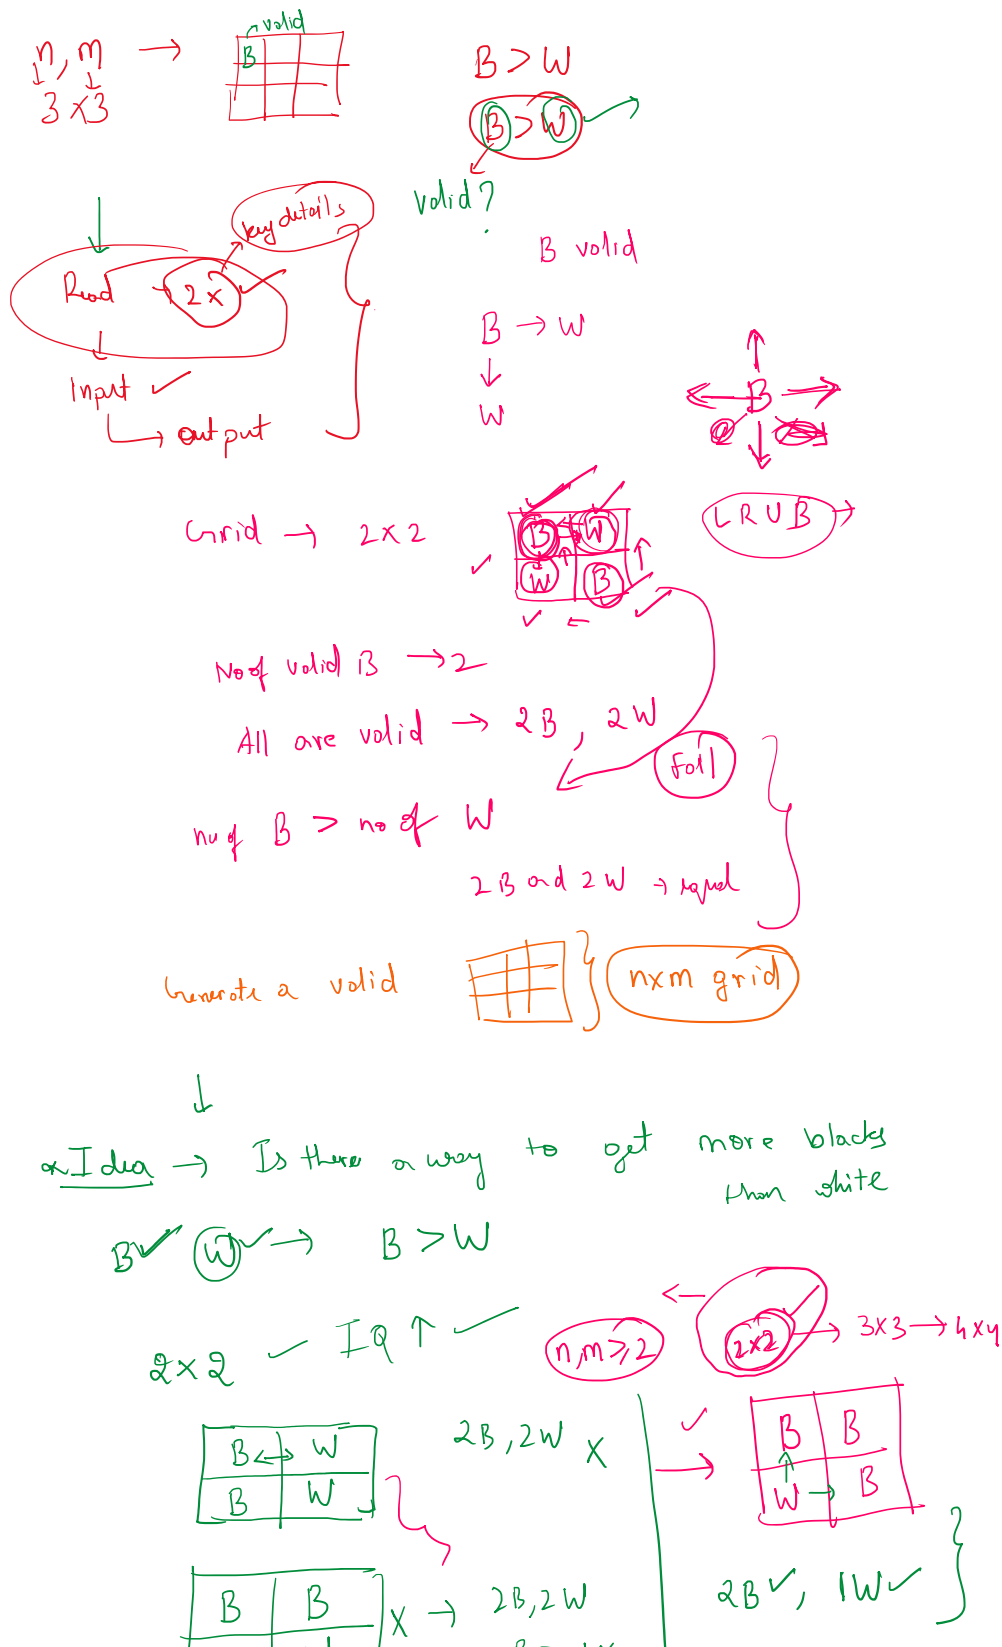 n, m → valid
B
3 x 3
B > W
B > W
valid?
key details
B valid
Read → 2x
B → W
W
Input ✓
→ output
B
LRUB →
Grid → 2x2
B W
W B
No of valid B → 2
All are valid → 2B, 2W
Fail
no of B > no of W
2B and 2W → equal
Generate a valid
nxm grid
Idea → Is there a way to get more blacks
than white
B ✓ W ✓ → B > W
IQ ↑ ✓
2x2
n,m ≥ 2
2x2 → 3x3 → 4x4
B ↔ W
B W
2B, 2W X
B B
W → B
B B
X → 2B, 2W
2B ✓, 1W ✓